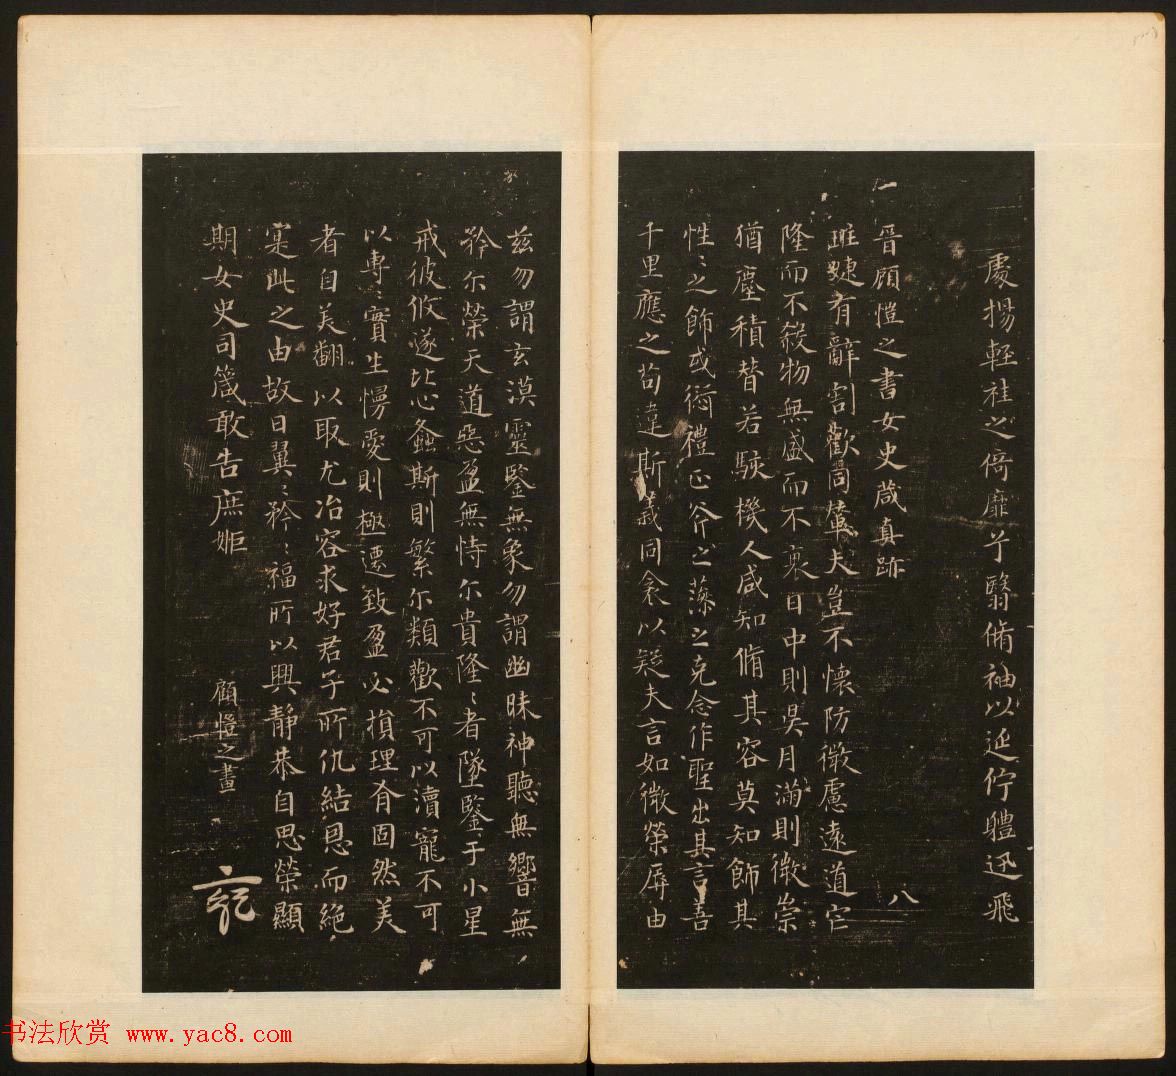 處揚輕袿之倚靡兮翳脩袖以延佇軆迅飛
晉顧愷之書女史葴真跡
班婕有辭割歡同輦夫豈不懷防微慮遠道宅
隆而不殺物無盛而不衰日中則昃月滿則微崇
猶塵積替若駭機人咸知脩其容莫知飾其
性〻之飾或愆禮正斧之藻之克念作聖出其言善
千里應之苟違斯義同衾以疑夫言如微榮辱由
八
茲勿謂玄漠靈鑒無象勿謂幽昧神聽無響無
矜尔榮天道惡盈無恃尔貴隆〻者墜鑒于小星
戒彼攸遂比心螽斯則繁尔類歡不可以瀆寵不可
以專〻實生慢愛則極遷致盈必損理有固然美
者自美翩以取尤冶容求好君子所仇結恩而絕
寔此之由故曰翼〻矜〻福所以興靜恭自思榮顯
期女史司箴敢告庶姬
顧愷之畫
书法欣赏 www.yac8.com